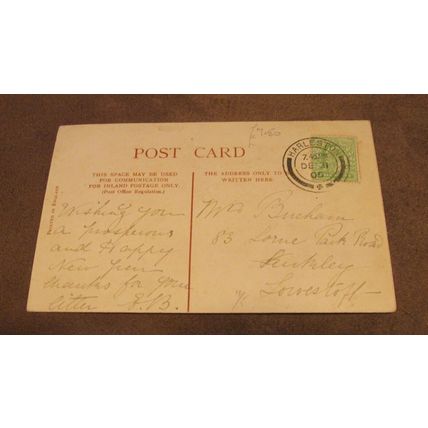 POST CARD
THIS SPACE MAY BE USED
FOR COMMUNICATION
FOR INLAND POSTAGE ONLY.
(Post Office Regulation).
PRINTED IN ENGLAND
Wishing you
a prosperous
and Happy
New Year
thanks for your
letter
THE ADDRESS ONLY TO
WRITTEN HERE.
HARLESTON
DE 31
05
83 Lorne Park Road
Kirkley
Lowestoft